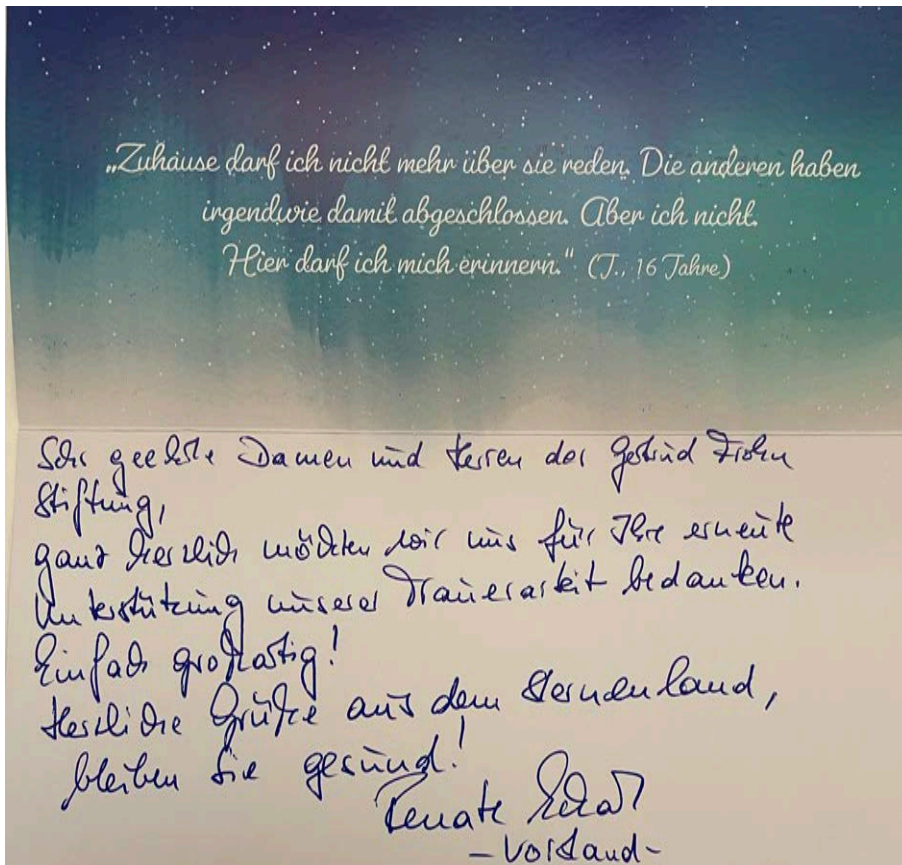 „Zuhause darf ich nicht mehr über sie reden. Die anderen haben
irgendwie damit abgeschlossen. Aber ich nicht.
Hier darf ich mich erinnern.“ (J., 16 Jahre)
Sehr geehrte Damen und Herren der Gertrud Frohn
Stiftung,
ganz herzlich möchten wir uns für Ihre erneute
Unterstützung unserer Trauerarbeit bedanken.
Einfach großartig!
Herzliche Grüße aus dem Sternenland,
bleiben Sie gesund!
Renate
- Vorstand -